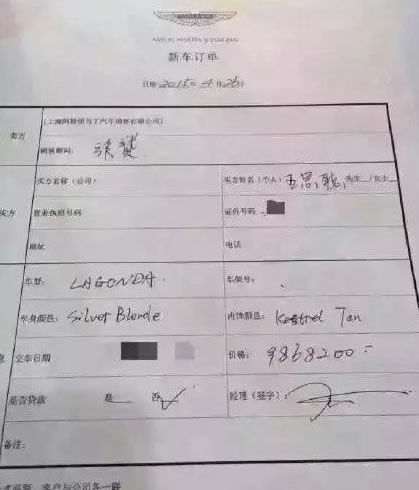 ASTON MARTIN SHANGHAI
新车订单
日期 2015年4月26日
卖方
(上海阿斯顿马丁汽车销售有限公司)
销售顾问:
买方
买方名称(公司)
买方姓名(个人) 王思聪 先生_/女士_
营业执照号码
证件号码
地址
电话
车型: LAGONDA
车架号:
车身颜色: Silver Blonde
内饰颜色: Kestrel Tan
息
交车日期
价格: 9868200
是否贷款
是 否✓
经理(签字):
备注:
客户与公司各一联